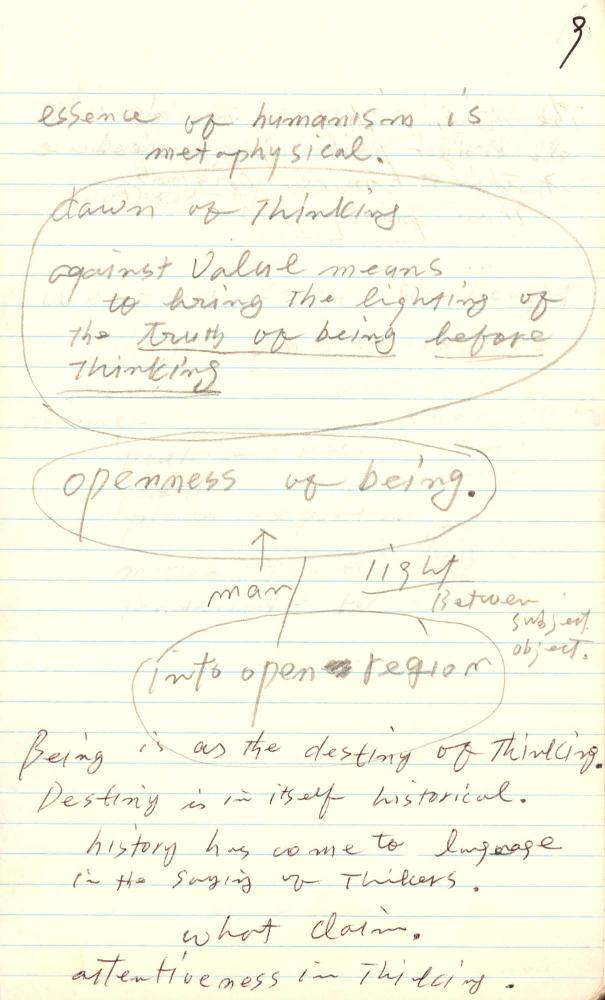 9
essence of humanism is
metaphysical.
dawn of Thinking
against Value means
to bring the lighting of
the truth of being before
Thinking
openness of being.
man
light
Between
subject
object.
into open region
Being is as the destiny of Thinking.
Destiny is in itself historical.
history has come to language
in the saying of Thinkers.
what claim.
attentiveness in Thinking.